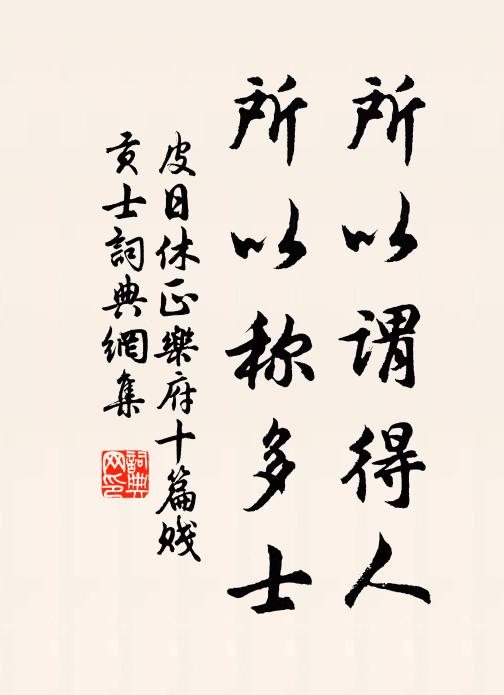 所以謂得人
所以称多士
皮日休正樂府十篇賤
貢士詞典網集
詞典
网印